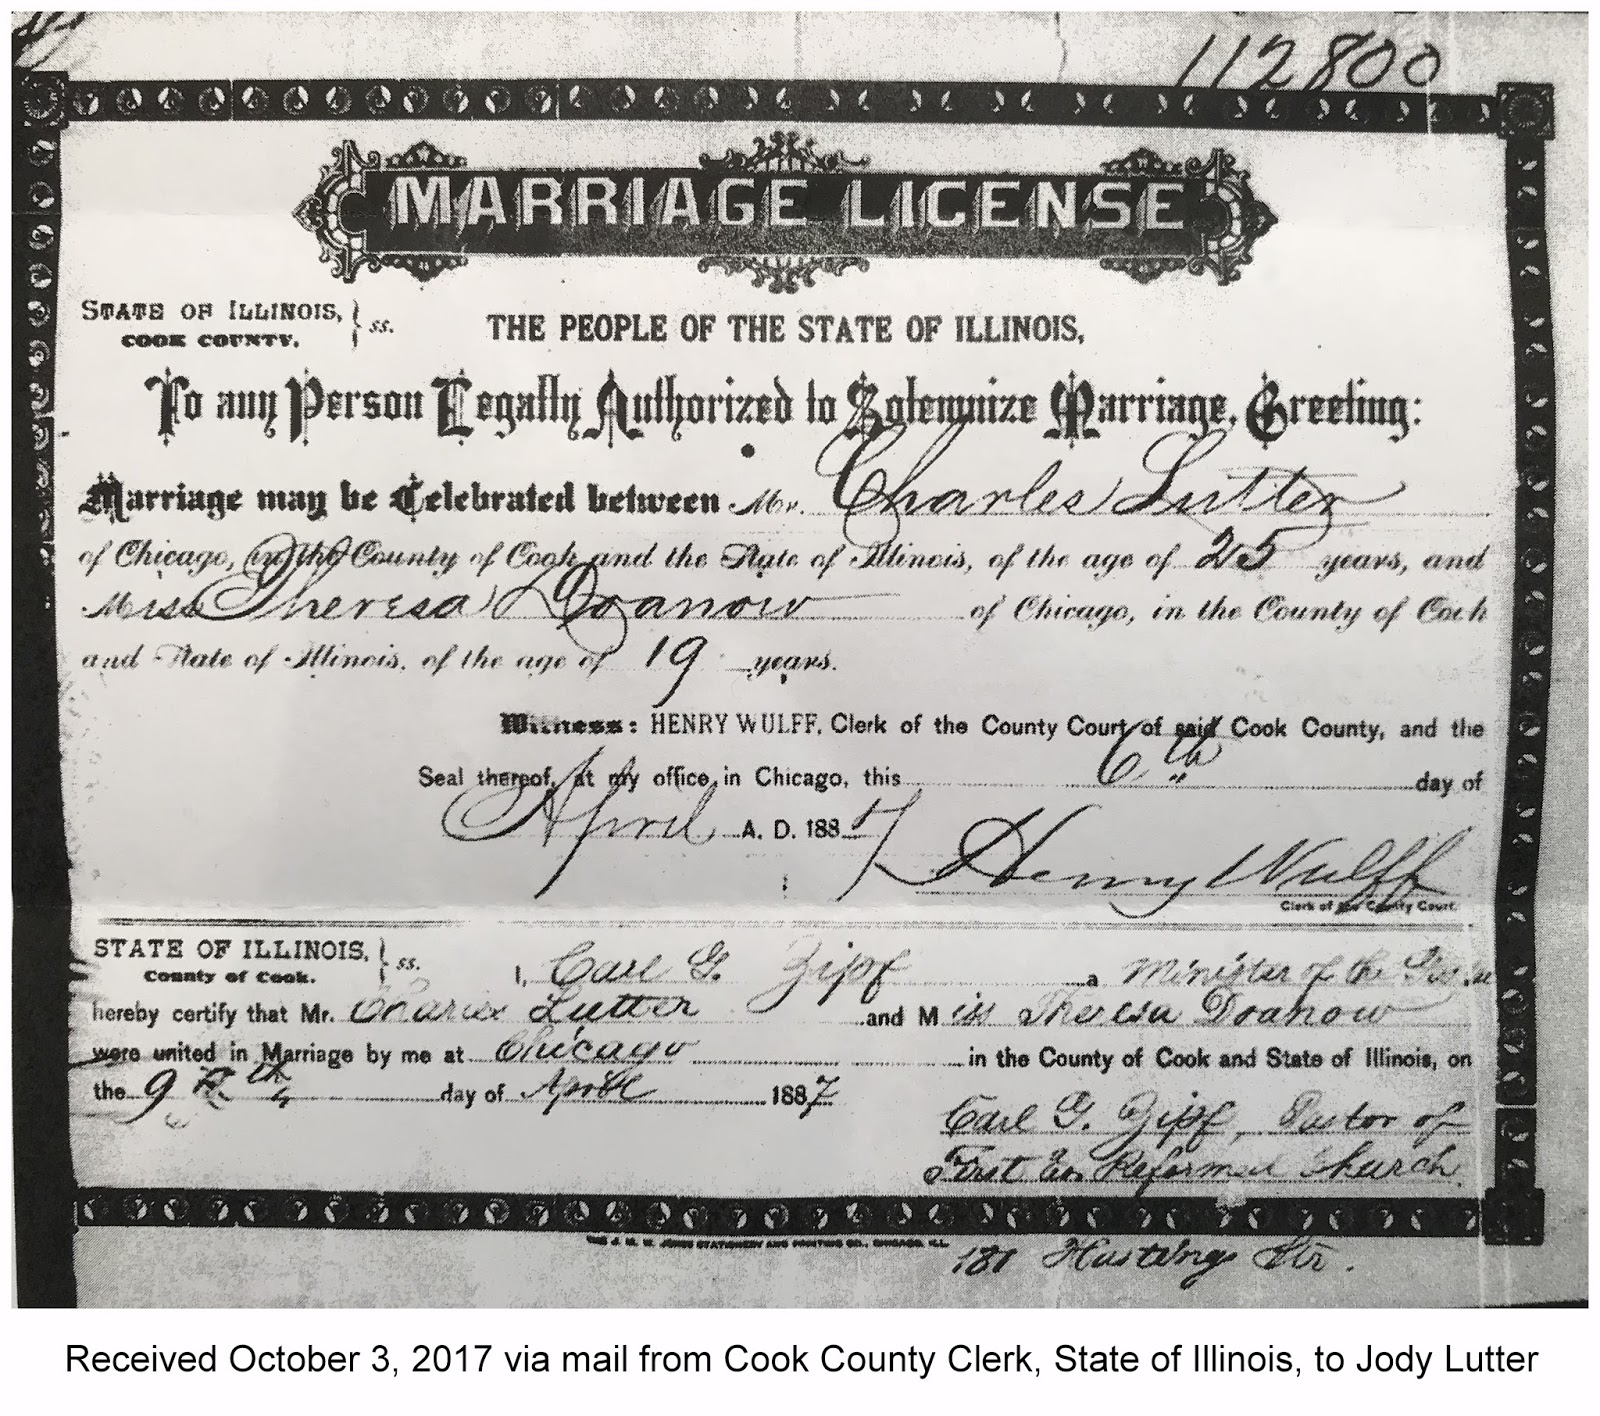 112800
MARRIAGE LICENSE
STATE OF ILLINOIS, } ss.
COOK COUNTY.
THE PEOPLE OF THE STATE OF ILLINOIS,
To any Person Legally Authorized to Solemnize Marriage, Greeting:
Marriage may be Celebrated between Mr. Charles Lutter
of Chicago, in the County of Cook and the State of Illinois, of the age of 25 years, and
Miss Theresa Doanow of Chicago, in the County of Cook
and State of Illinois, of the age of 19 years.
Witness: HENRY WULFF, Clerk of the County Court of said Cook County, and the
Seal thereof, at my office, in Chicago, this 6th day of
April A. D. 1887
Henry Wulff
Clerk of the County Court.
STATE OF ILLINOIS, } ss.
County of Cook.
I, Carl G. Zipf a Minister of the
hereby certify that Mr. Charles Lutter and Miss Theresa Doanow
were united in Marriage by me at Chicago in the County of Cook and State of Illinois, on
the 9th day of April 1887
Carl G. Zipf, Pastor of
First Ev. Reformed Church.
THE J. M. W. JONES STATIONERY AND PRINTING CO., CHICAGO, ILL.
181 Hastings Str.
Received October 3, 2017 via mail from Cook County Clerk, State of Illinois, to Jody Lutter